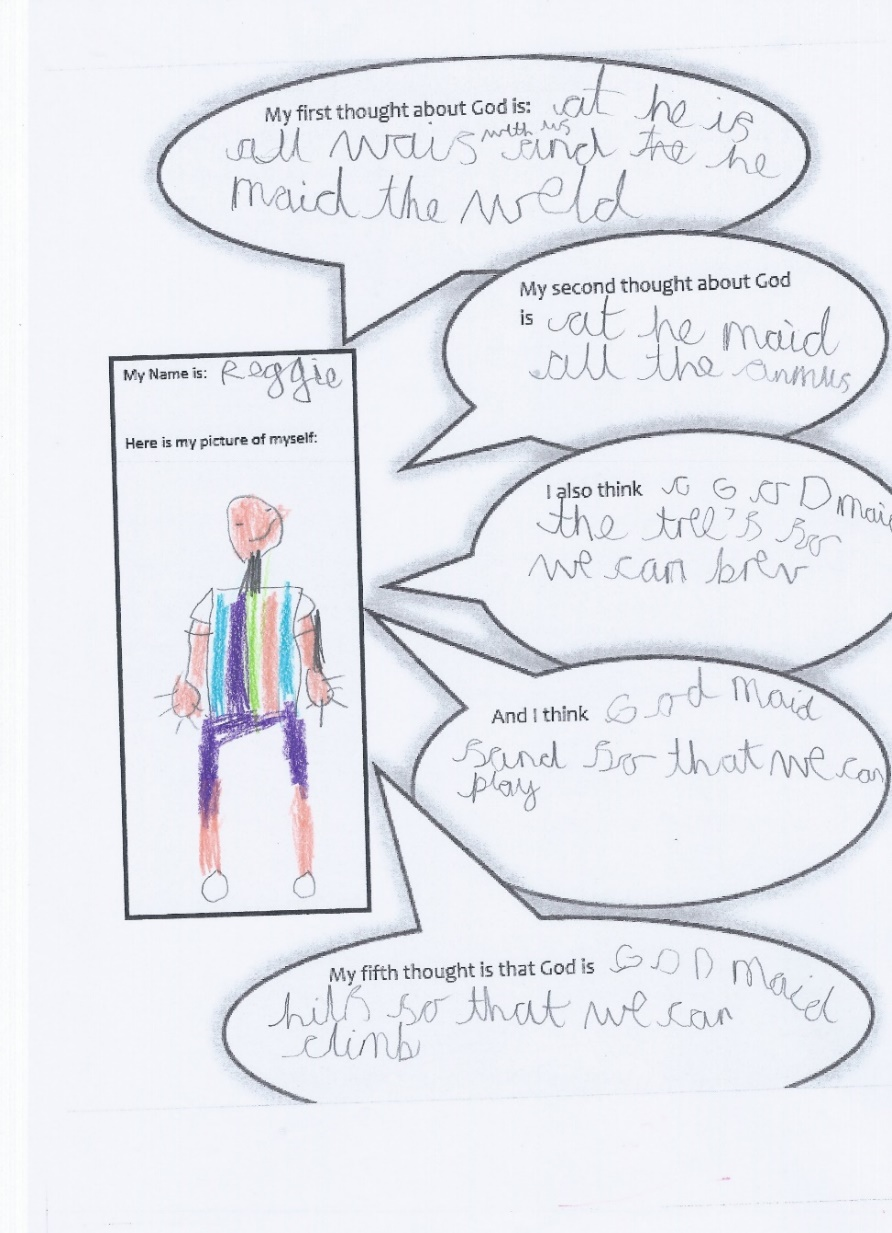 My first thought about God is: at he is
all wais with us and the he
maid the weld
My second thought about God
is at he maid
all the anmus
My Name is: Reggie
Here is my picture of myself:
I also think G GOD maid
the tree's so
we can brev
And I think God maid
sand so that we can
play
My fifth thought is that God is GOD maid
hils so that we can
climb